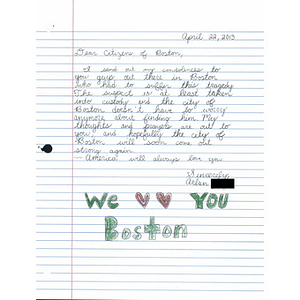 April 22, 2013
Dear Citizens of Boston,
I send out my condolences to
you guys out there in Boston
who had to suffer this tragedy
The suspect is at least taken
into custody and the city of
Boston doesn't have to worry
anymore about finding him My
thoughts and prayers are out to
you, and hopefully the city of
Boston will soon come out
strong again.
- America will always love you.
Sincerely,
We YOU
Boston